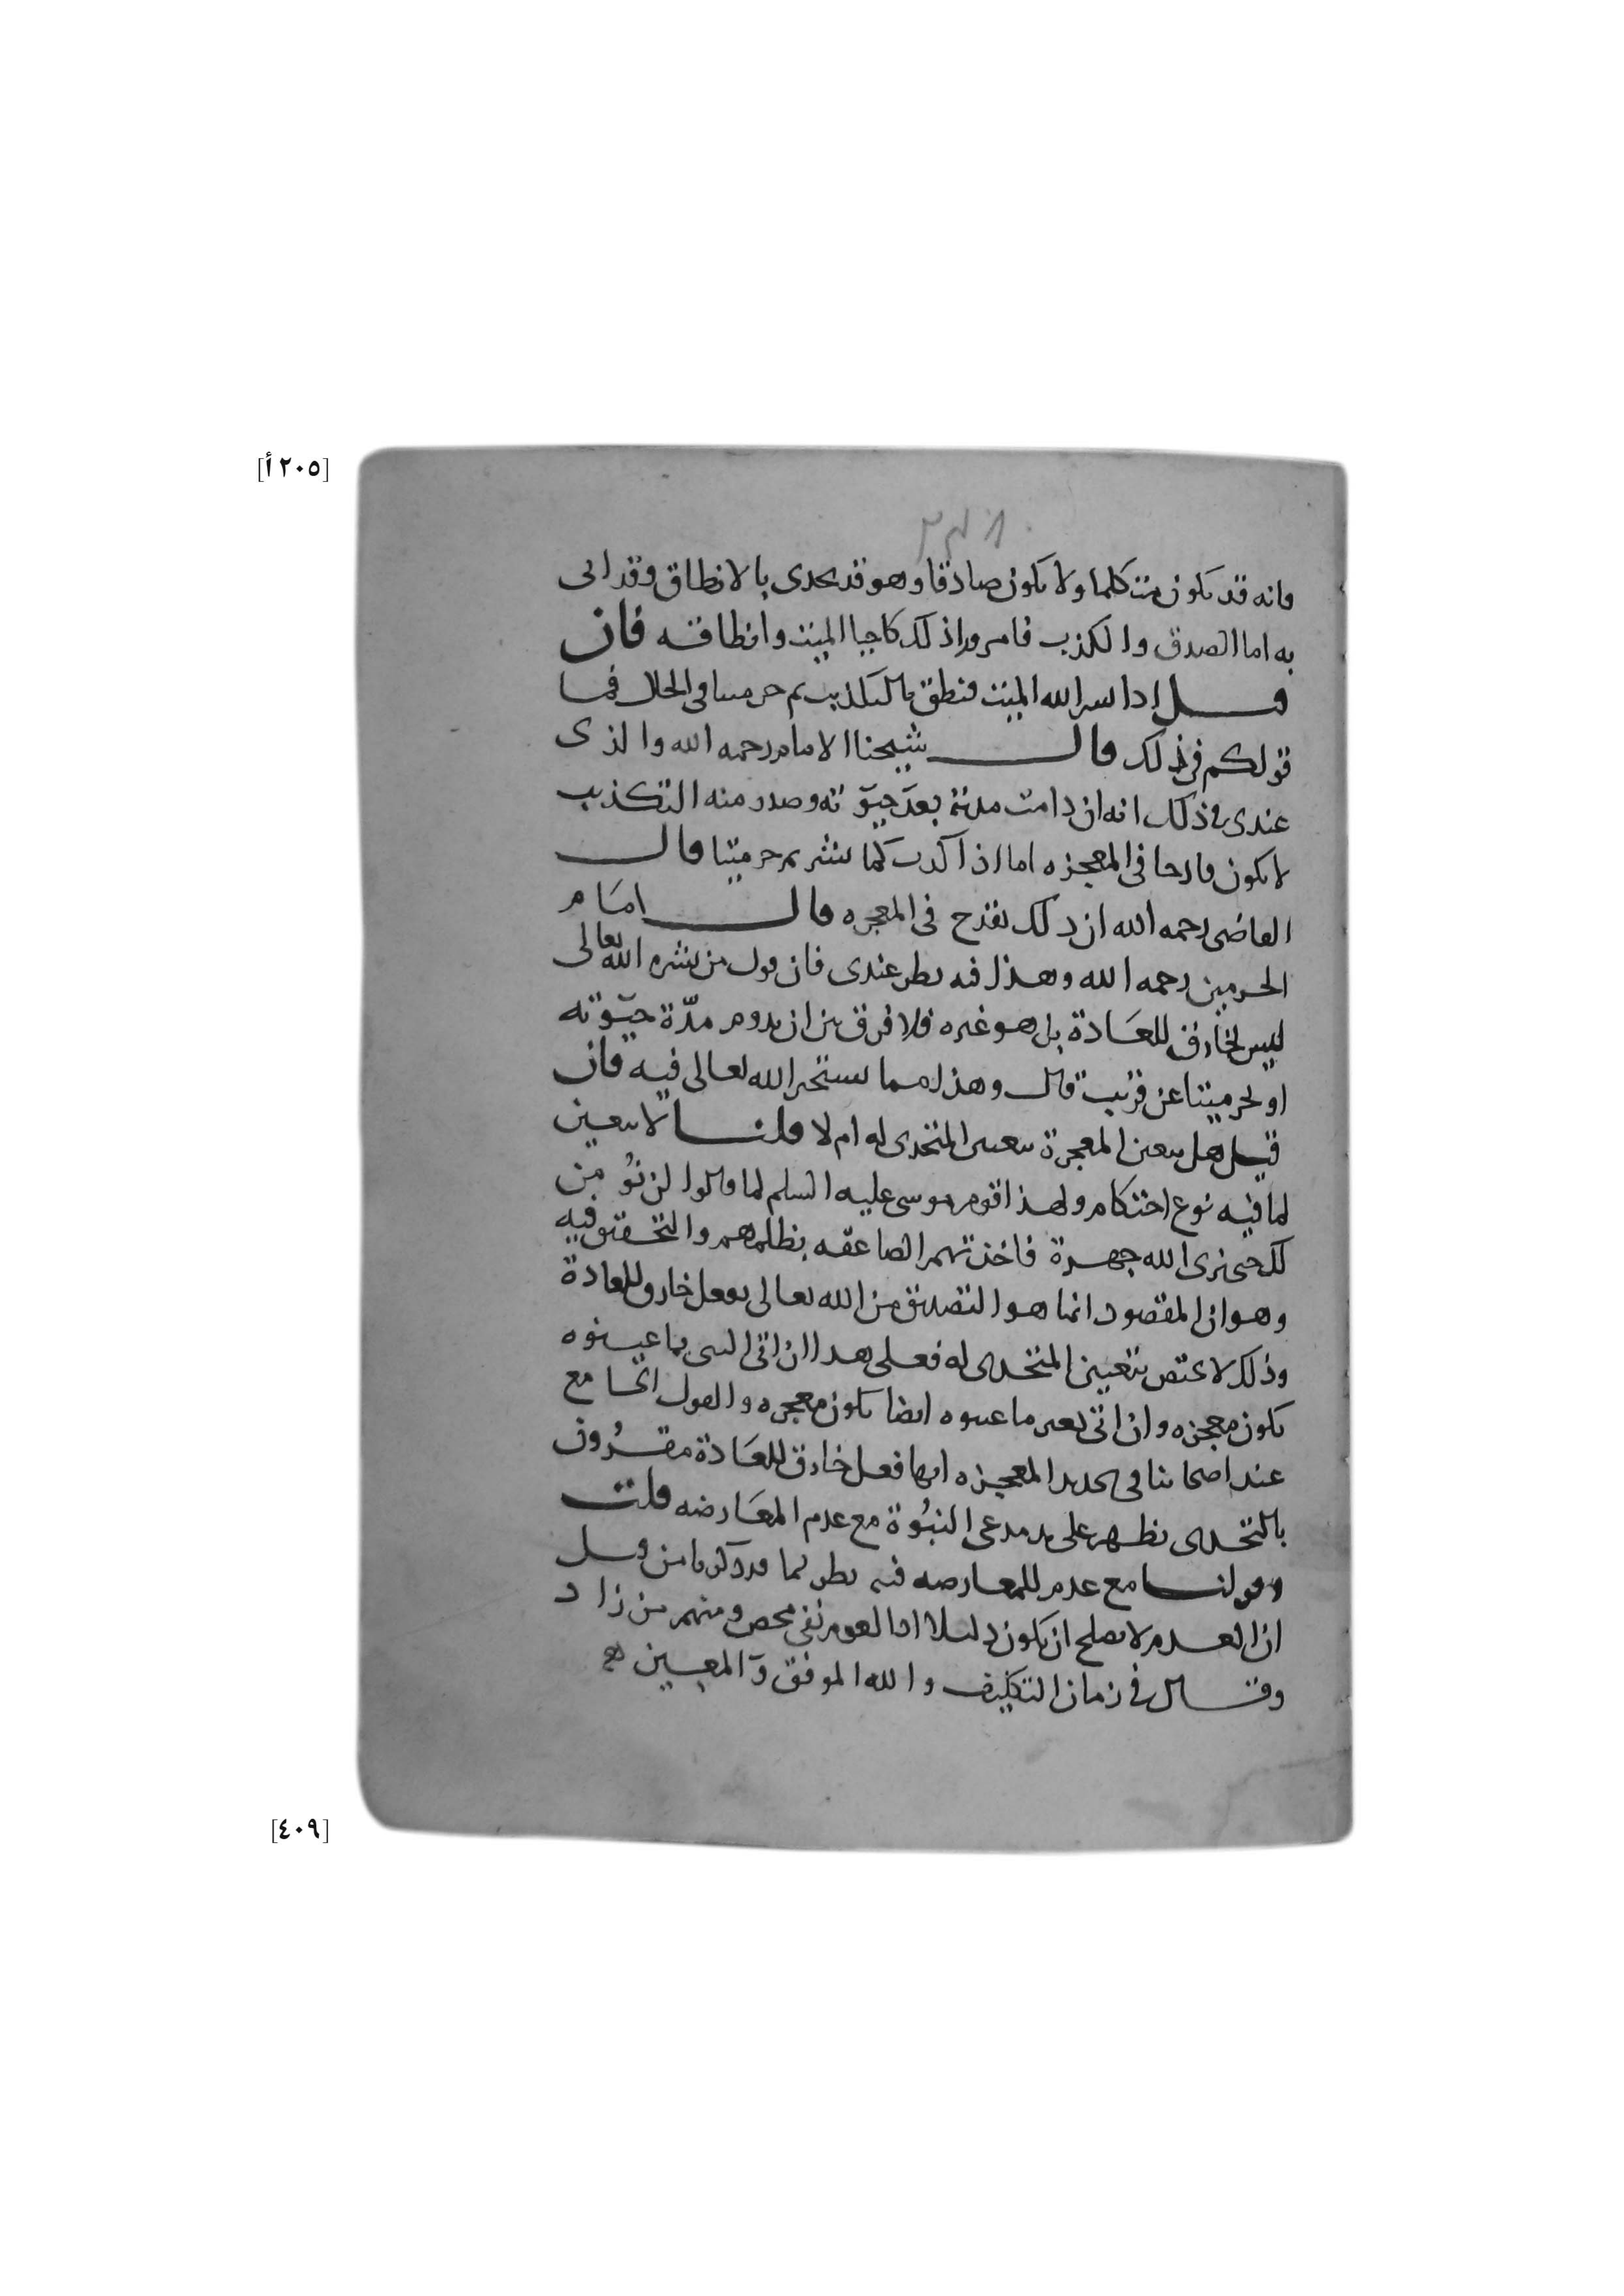 [٢٠٥ أ]
فانه قد يكون متكلما ولا يكون صادقا وهو قد تحدى بالانطاق وقد اتى
به اما الصدق والكذب فامر وراذلك كاحيا الميت وانطاقه فان
قيل اذا انشر الله الميت فنطق بالتكذيب ثم خر ميتا في الحال فما
قولكم في ذلك قال شيخنا الامام رحمه الله والذى
عندى في ذلك انه ان دامت مدته بعد حيوته وصدر منه التكذيب
لا يكون قادحا في المعجزه اما اذا كذب كما نشر ثم خر ميتا قال
القاضي رحمه الله ان ذلك يقدح في المعجزه قال امام
الحرمين رحمه الله وهذا فيه نظر عندى فان قول من ينشره الله تعالى
ليس بخارق للعادة بل هو غيره فلا فرق بين ان يدوم مدّة حيوته
او يخر ميتا عن قريب قال وهذا مما نستخير الله تعالى فيه فان
قيل هل يتعين المعجزة بتعيين المتحدى له ام لا قلنا لا يتعين
لما فيه نوع احتكام ولهذا قوم موسى عليه السلم لما قالوا لن نؤمن
لك حتى نرى الله جهرة فاخذتهم الصاعقه بظلمهم والتحقيق فيه
وهو ان المقصود انما هو التصديق من الله تعالى بفعل خارق للعادة
وذلك لا يختص بتعيين المتحدى له فعلى هذا ان اتى النبى بما عينوه
يكون معجزه وان اتى بغير ما عينوه ايضا يكون معجزه والقول الجامع
عند اصحابنا في تحديد المعجزه انها فعل خارق للعَادة مقرُون
بالتحدى يظهر على يد مدعى النبُوة مع عدم المعَارضه قلت
وقولنا مع عدم للمعارضه فيه نظر لما قد ذكرنا من قبل
ان العدم لا يصلح ان يكون دليلا اذا العدم نفى محض ومنهم من زاد
وقال في زمان التكليف والله الموفق والمعين
[٤٠٩]